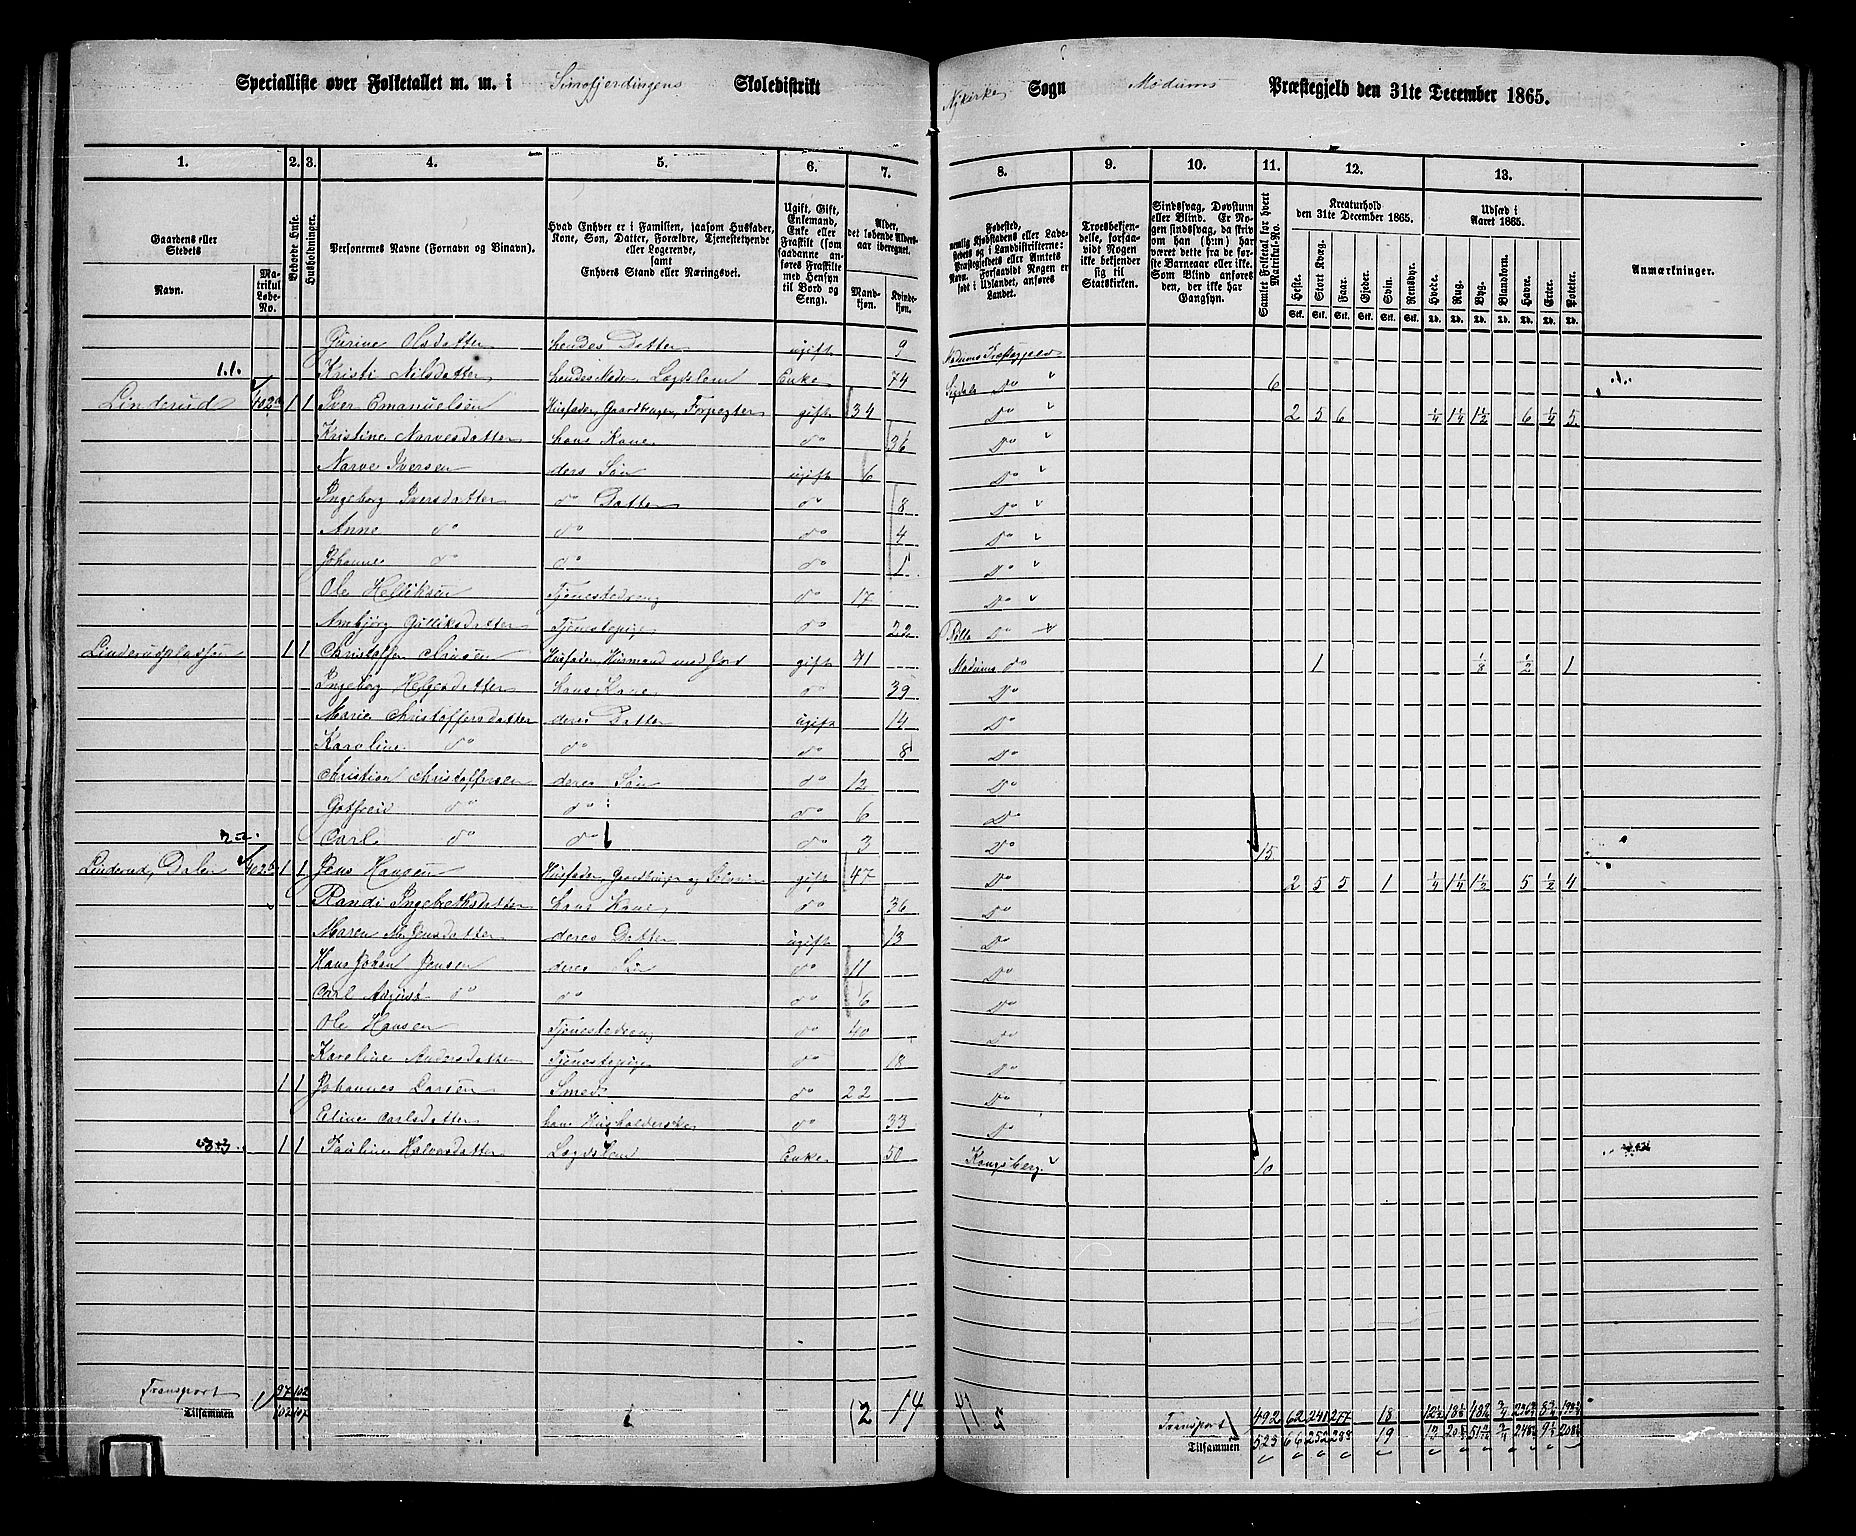 Specialliste over Folketallet m. m. i Simofjerdingens Skoledistrikt Nykirke Sogn Modums Præstegjeld den 31te December 1865.
1. 2. 3. 4. 5. 6. 7. 8. 9. 10. 11. 12. 13.
Gaardens eller Stedets Navn. Matrikul Løbe-No. Beboede Huse. Husholdninger. Personernes Navne (Fornavn og Vinavn). Hvad Enhver er i Familien, saasom Husfader, Kone, Søn, Datter, Forældre, Tjenestetyende eller Logerende, samt Enhvers Stand eller Næringsvei. Ugift, Gift, Enkemand, Enke eller Fraskilt (som saadanne anføres Fraskilte med Hensyn til Bord og Seng). Alder, det løbende Aldersaar iberegnet. Mandkjøn. Kvindekjøn.
Fødested, nemlig Kjøbstadens eller Ladestedets og i Landdistrikterne: Præstegjeldets eller Amtets Navn. Forsaavidt Nogen er født i Udlandet, anføres Landet. Troesbekjendelse, forsaavidt Nogen ikke bekjender sig til Statskirken. Sindssvag, Døvstum eller Blind. Er Nogen sindssvag, da skrives om han (hun) har været dette fra de første Barneaar eller ikke. Som Blind anføres den, der ikke har Gangsyn. Samlet Folketal for hvert Matrikul-No. Kreaturhold den 31te December 1865. Heste. Stort Kvæg. Faar. Gjeder. Svin. Rensdyr. Udsæd i Aaret 1865. Hvede. Rug. Byg. Blandkorn. Havre. Erter. Poteter. Anmærkninger.
Gurine Olsdatter hendes Datter ugift 9 Modums Præstegjeld
1.1. Kristi Nilsdatter hendes Moder, Lægdslem Enke 74 Sigdals Do 6
Linderud 402a 1 1 Iver Emanuelsen Husfader, Gaardbruger, Forpagter gift 34 Do 2 5 6 1/4 1 1/4 1 1/2 6 1/4 5
Kristine Narvesdatter hans Kone do 36 Do
Narve Iversen deres Søn ugift 6 Do
Ingeborg Iversdatter do Datter do 8 Do
Anne do do do 4 Do
Johanne do do do 1 Do
Ole Helliksen Tjenestedreng do 17 Do
Ambjørg Gulliksdatter Tjenestepige do 22 Do
Linderudpladsen 1 1 Christoffer Husfader, Husmand med Jord gift 41 Modums do 1 1/8 1/2 1
Ingeborg Helgesdatter hans Kone do 39 Do
Marie Christoffersdatter deres Datter ugift 14 Do
Karoline do do do 8 Do
Christian Christoffersen deres Søn do 12 Do
Gotfreid do do do 6 Do
Carl do do do 3 Do 15
Linderud, Dalen 402b 1 1 Jens Hansen Husfader, Gaardbruger og Selveier gift 47 Do 2 5 5 1 1/4 1 1/4 1 1/2 5 1/2 4
Randi Ingebrethsdatter hans Kone do 36 Do
Maren M. Jensdatter deres Datter ugift 13 Do
Hans Johan Jensen deres Søn do 11 Do
Carl August do do do 6 Do
Ole Hansen Tjenestedreng do 40 Do
Karoline Andersdatter Tjenestepige do 18 Do
1 1 Johannes Larsen Smed do 22 Do
Eline Carlsdatter hans Husholderske do 33 Do
3.3. 1 1 Pauline Halvorsdatter Lægdslem Enke 50 Kongsberg 10
Transport 97 102 Transport 492 62 241 277 18
Tilsammen 102 107 12 14 Tilsammen 523 66 252 288 19 13